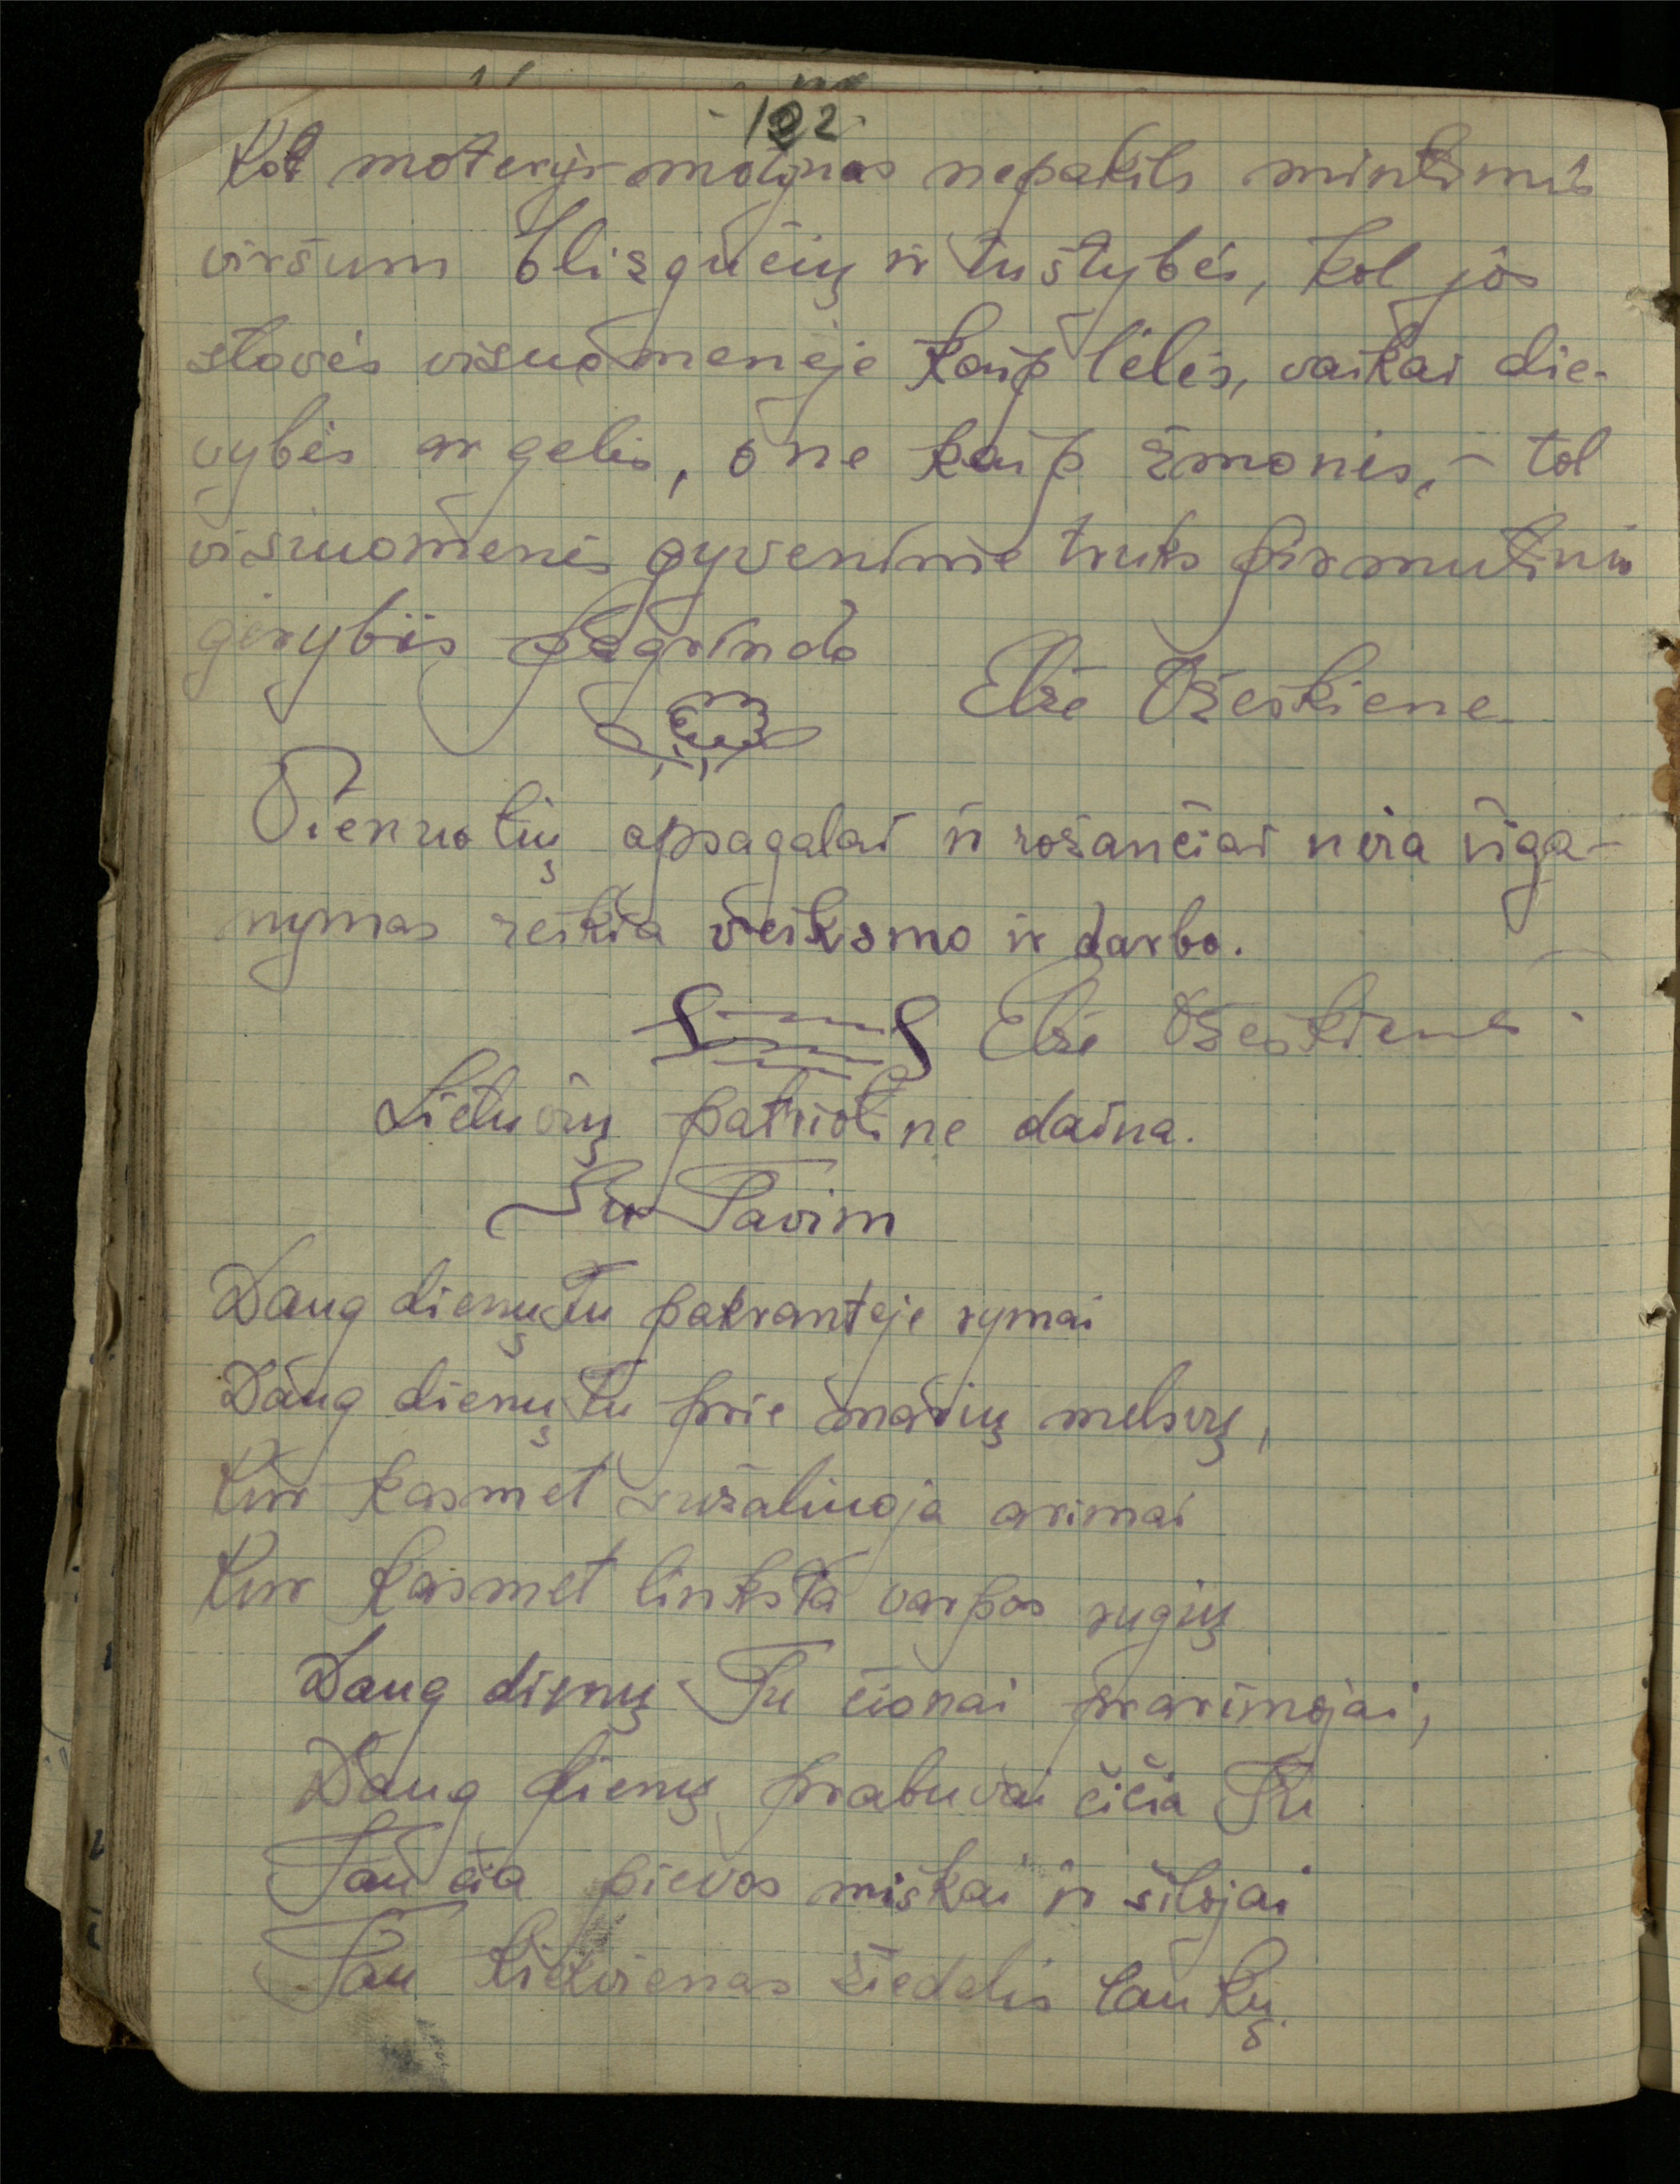 102
Kol moterys motynos nepakils mintimis
viršum blizgučių ir tuštybės, kol jos
stovės visuomenėje kaip lėlės, vaikai die-
vybės ar gelės, o ne kaip žmonės, – tol
visuomenės gyvenime truks pirmutinio
gėrybiis pagrindo
Elžė Ožeškiene
Vienuolių apsagalai ir rožančiai nėra išga-
nymas reikia veiksmo ir darbo.
Elžė Ožeškienė.
Lietuvių patriotinė daina.
Su Tavim
Daug dienų Tu pakrantėje rymai
Daug dienų Tu prie marių melsvų,
Kur kasmet sužaliuoja arimai
Kur kasmet linksta varpos rugių
Daug dienų Tu čionai prarimojai,
Daug dienų prabuvai čičia Tu
Tau čia pievos miškai ir šilojai
Tau kiekvienas žiedelis laukų.